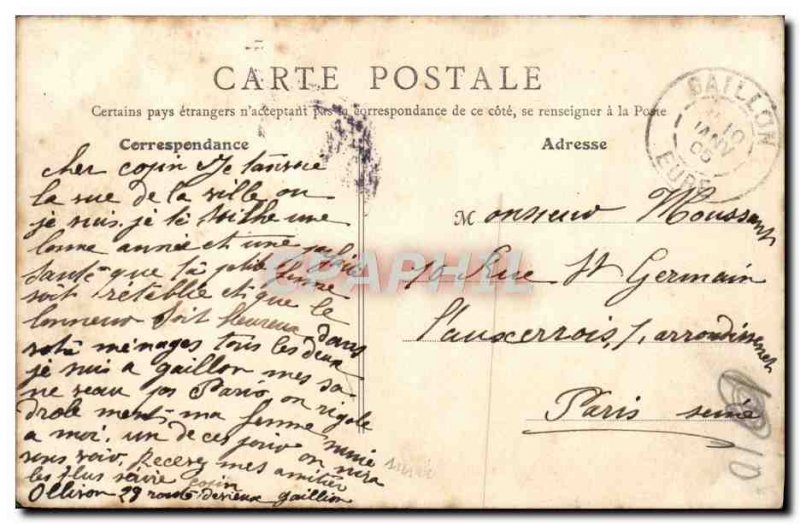 CARTE POSTALE
Certains pays étrangers n'acceptant pas la correspondance de ce côté, se renseigner à la Poste
Correspondance
cher copin Je tanvoie
la vue de la ville ou
je suis. je te soithe une
bonne année et une
santé que ta ptite femme
soit rétablie et que le
bonneur soit heureux dans
votre ménages tous les deux
je suis a gaillon mes sa
ne veau pas Paris on rigole
drole ment. ma femme
a moi. un de ces jours on
vous voir. Recevez mes amitier
les plus copin
Olliron 29 route gaillon
Adresse
Monsieur Moussant
10 Rue St Germain
l'auxerrois, 1, arrondissement
Paris seine
GAILLON
10
JANV
EURE
CPAPHIL